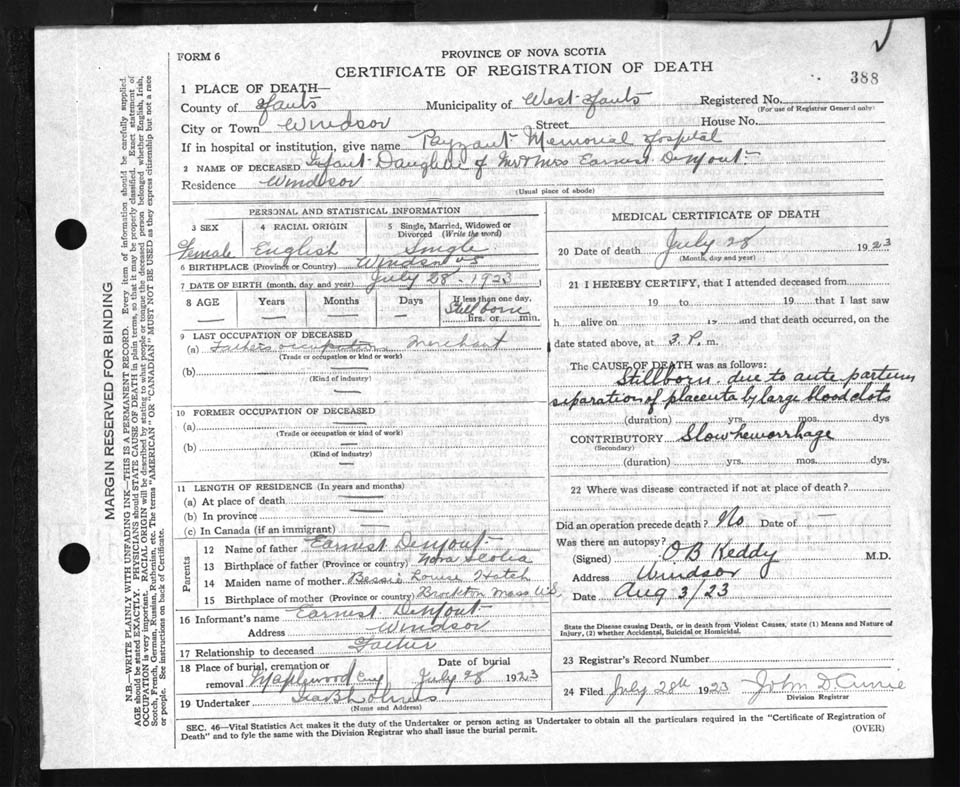 FORM 6
PROVINCE OF NOVA SCOTIA
CERTIFICATE OF REGISTRATION OF DEATH
388
1 PLACE OF DEATH—
County of Hants Municipality of West Hants Registered No.
(For use of Registrar General only)
City or Town Windsor Street House No.
If in hospital or institution, give name Payzant Memorial Hospital
2 NAME OF DECEASED Infant Daughter of Mr & Mrs Earnest Denyout
Residence Windsor
(Usual place of abode)
PERSONAL AND STATISTICAL INFORMATION
3 SEX 4 RACIAL ORIGIN 5 Single, Married, Widowed or Divorced (Write the word)
Female English Single
6 BIRTHPLACE (Province or Country) Windsor NS
7 DATE OF BIRTH (month, day and year) July 28 - 1923
8 AGE Years Months Days If less than one day,
Stillborn
hrs. or min.
9 LAST OCCUPATION OF DECEASED
(a) Fathers occupation Merchant
(Trade or occupation or kind or work)
(b)
(Kind of industry)
10 FORMER OCCUPATION OF DECEASED
(a)
(Trade or occupation or kind of work)
(b)
(Kind of industry)
11 LENGTH OF RESIDENCE (In years and months)
(a) At place of death
(b) In province
(c) In Canada (if an immigrant)
Parents
12 Name of father Earnest Denyout
13 Birthplace of father (Province or country) Nova Scotia
14 Maiden name of mother Bessie Louise Hatch
15 Birthplace of mother (Province or country) Brockton Mass U.S.
16 Informant's name Earnest Denyout
Address Windsor
17 Relationship to deceased Father
18 Place of burial, cremation or removal Maplewood Cmy Date of burial July 28 1923
19 Undertaker Geo B Holmes
(Name and Address)
MEDICAL CERTIFICATE OF DEATH
20 Date of death July 28 1923
(Month, day and year)
21 I HEREBY CERTIFY, that I attended deceased from
19 to 19 that I last saw
h alive on 19 and that death occurred, on
date stated above, at 3 P. m.
The CAUSE OF DEATH was as follows:
Stillborn due to ante partum
separation of placenta by large blood clots
(duration) yrs. mos. dys
CONTRIBUTORY Slow hemorrhage
(Secondary)
(duration) yrs. mos. dys.
22 Where was disease contracted if not at place of death?
Did an operation precede death? No Date of
Was there an autopsy?
(Signed) O B Keddy M.D.
Address Windsor
Date Aug 3/23
State the Disease causing Death, or in death from Violent Causes, state (1) Means and Nature of
Injury, (2) whether Accidental, Suicidal or Homicidal.
23 Registrar's Record Number
24 Filed July 28th 1923 John D
Division Registrar
SEC. 46—Vital Statistics Act makes it the duty of the Undertaker or person acting as Undertaker to obtain all the particulars required in the "Certificate of Registration of
Death" and to fyle the same with the Division Registrar who shall issue the burial permit.
(OVER)
MARGIN RESERVED FOR BINDING
N.B.—WRITE PLAINLY WITH UNFADING INK—THIS IS A PERMANENT RECORD. Every item of information should be carefully supplied.
AGE should be stated EXACTLY. PHYSICIANS should STATE CAUSE OF DEATH in plain terms, so that it may be properly classified. Exact statement of
OCCUPATION is very important. RACIAL ORIGIN will be described by stating to what people or tongue the deceased person belonged whether English, Irish,
Scotch, French, German, Russian, Ruthenian, etc. The terms "AMERICAN" OR "CANADIAN" MUST NOT BE USED as they express citizenship but not a race
or people. See instructions on back of Certificate.